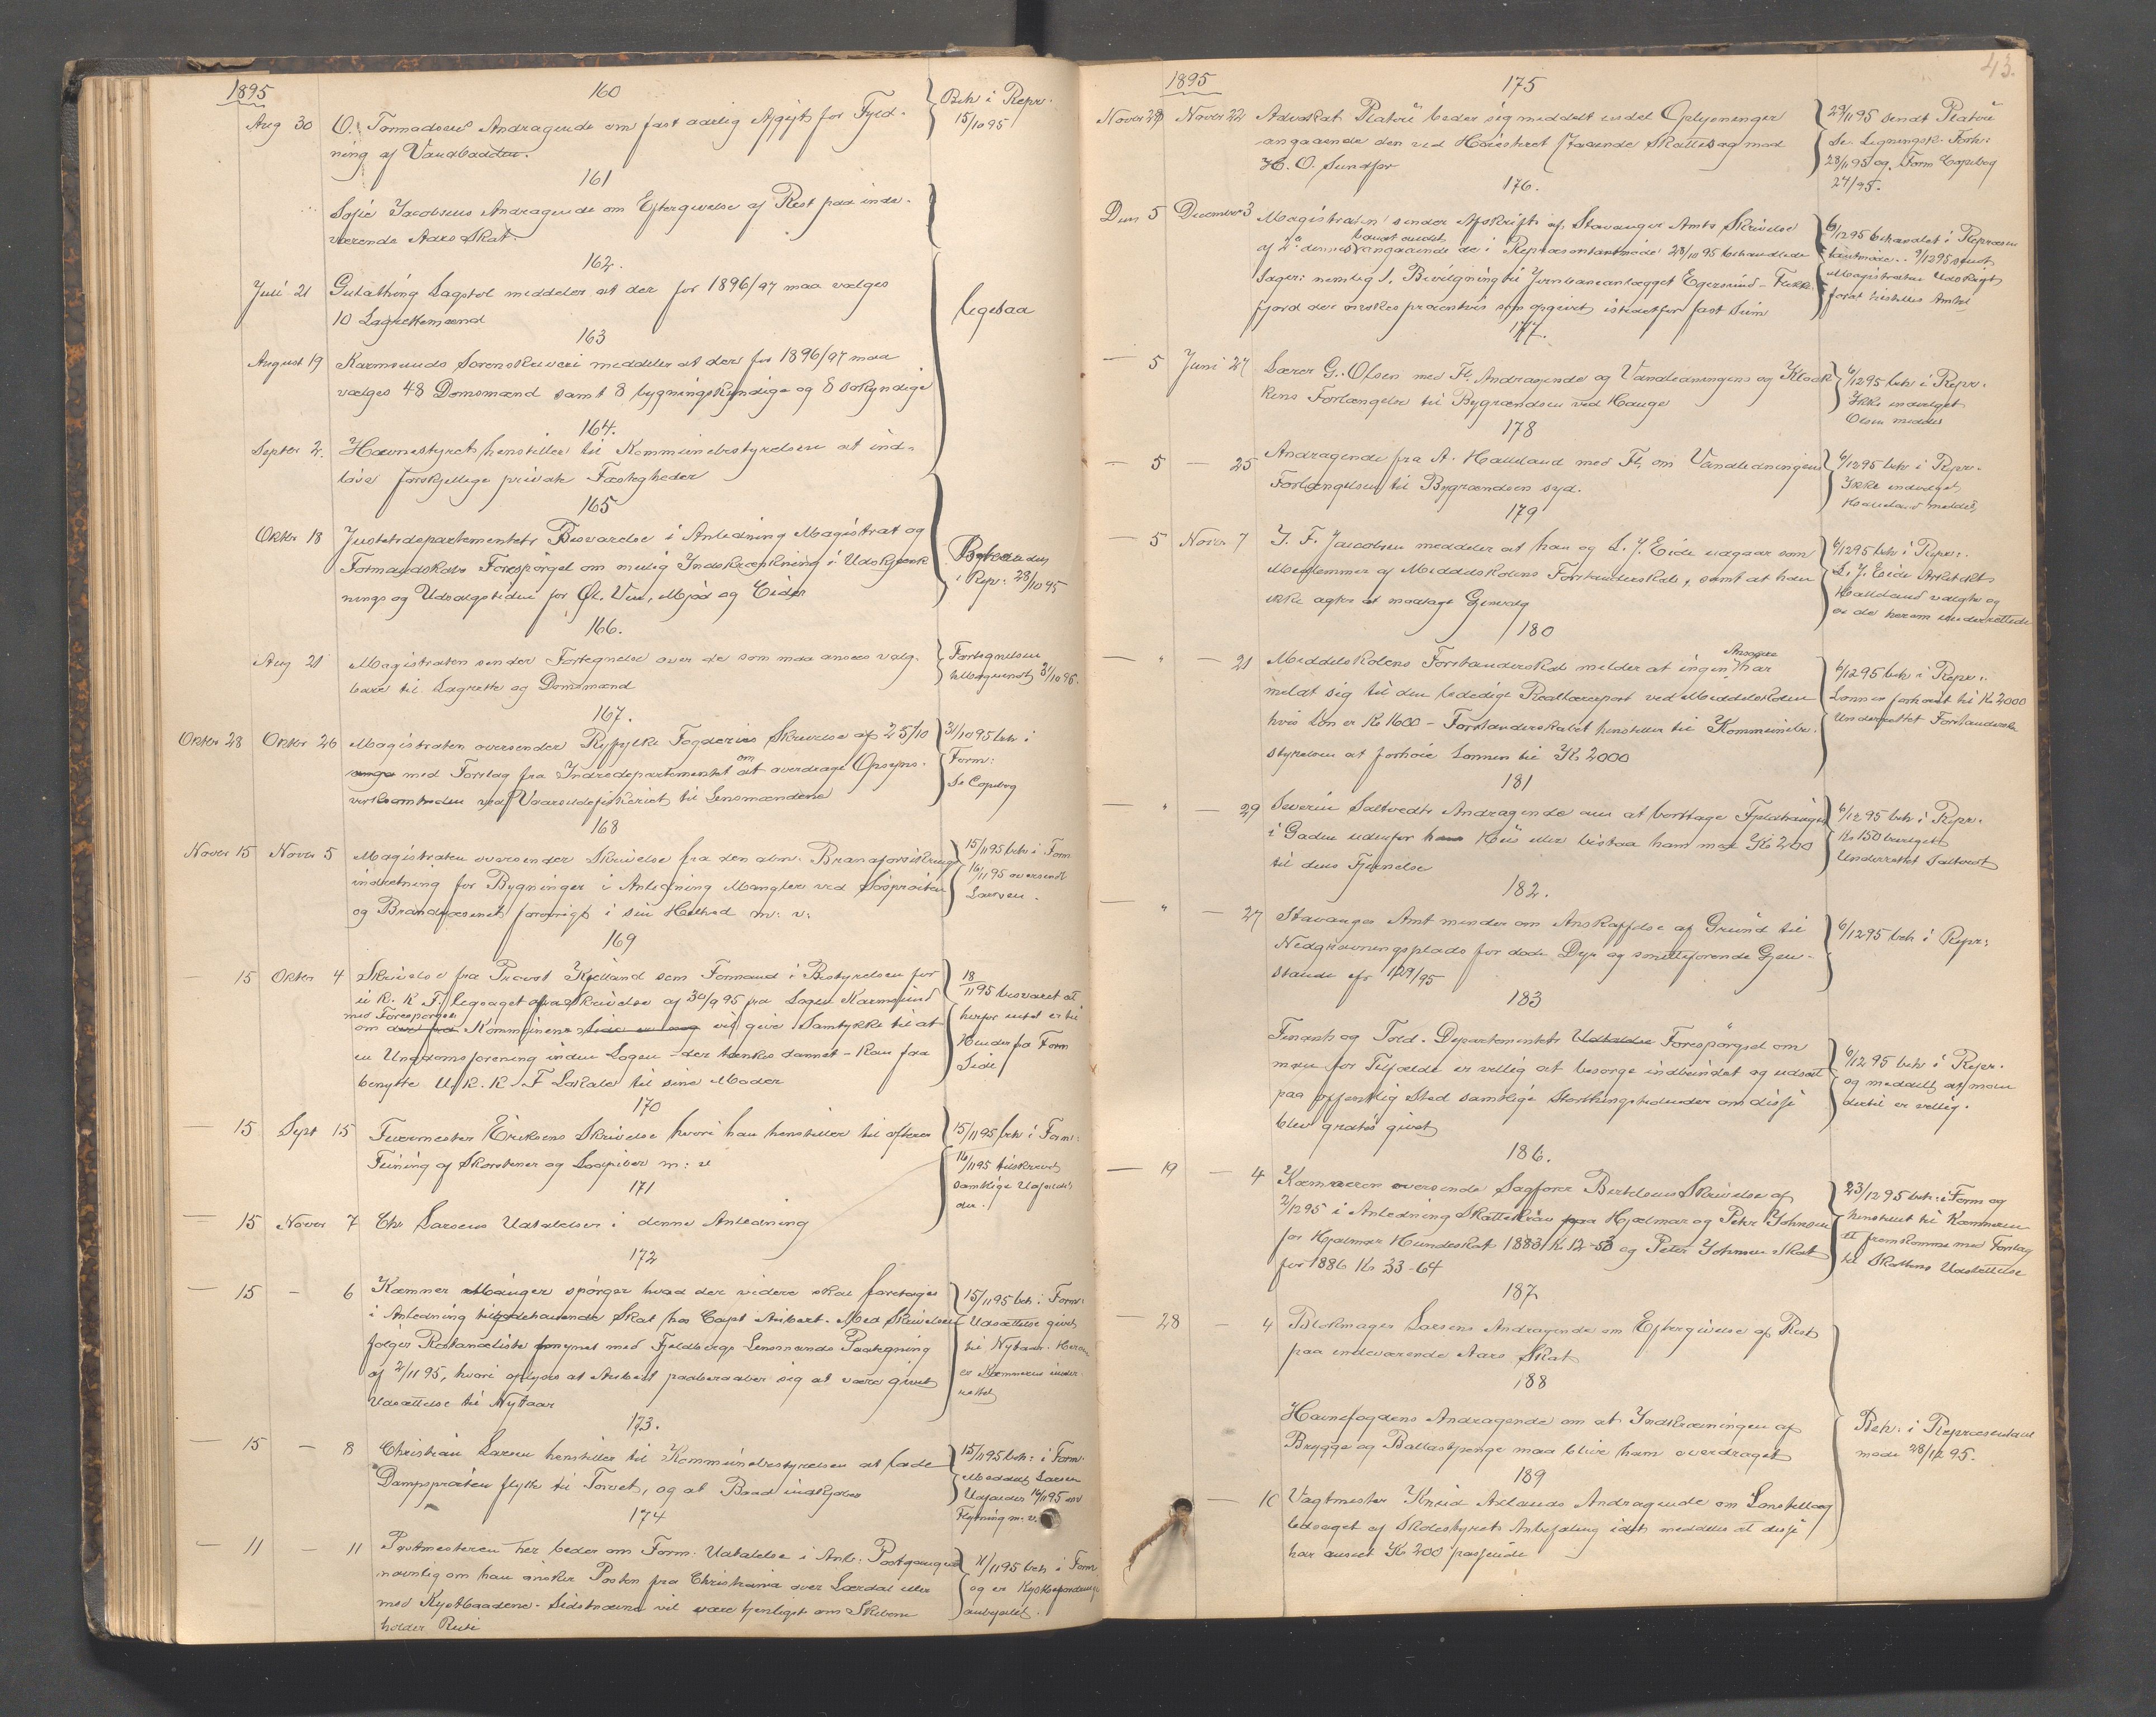 1895
160
Aug 30 O. Tormodsens Andragende om fast aarlig Afgift for Fyld-
ning af Vandbaadene.
Beh i Repr.
15/10 95
161
Sofie Jacobsens Andragende om Eftergivelse af Rest paa inde-
værende Aars Skat.
162.
Juli 21 Gulathing Lagstol meddeler at der for 1896/97 maa vælges
10 Lagrettemænd
ligesaa
163
August 19 Karmsunds Sorenskriveri meddeler at der for 1896/97 maa
vælges 48 Domsmænd samt 8 bygningskyndige og 8 søkyndige
164.
Septer 2. Havnestyret henstiller til Kommunebestyrelsen at ind-
løse forskjellige private Fæstegheder
165
Oktbr 18 Justitsdepartementets Besvarelse i Anledning Magistrat og
Formandskabs Forespørgsel om mulig Indskrænkning i Udskjænk
nings og Udsalgstiden for Øl, Vin, Mjød og Cider
i Repr. 28/10 95
166.
Aug 21 Magistraten sender Fortegnelse over de som maa ansees valg-
bare til Lagrette og Domsmænd
Fortegnelsen
167.
Oktbr 28 Oktbr 26 Magistraten oversender Ryfylke Fogderies Skrivelse af 25/10
med Forslag fra Indredepartementet om at overdrage Opsyns-
virksomheden ved Vaarsildefiskeriet til Lensmændene
31/10 95 beh i
Form:
Se Copibog
168
Novbr 15 Novbr 5 Magistraten oversender Skrivelse fra den alm. Brandforsikrings
indretning for Bygninger i Anledning Mangler ved Søsprøiten
og Brandvæsenet forøvrigt i sin Helhed m. v.
15/11 95 beh i Form
16/11 95 oversendt
Larsen.
169
— 15 Oktbr 4 Skrivelse fra Provst Kjelland som Formand i Bestyrelsen for
U. K. K. F. ledsaget af Skrivelse af 30/9 95 fra Logen Karmsund
med Forespørgsel
om Kommunens vil give Samtykke til at
en Ungdomsforening inden Logen - der tænkes dannet - kan faa
benytte U. K. K. F Lokale til sine Møder
18
11 95 besvaret at
herfor intet er til
Hinder fra Form
Side
170
— 15 Sept 15 Feiermester Eriksens Skrivelse hvori han henstiller til oftere
Feining af Skorstener og Sodpiber m: v
15/11 95 beh i Form:
16/11 95 tilskrevet
samtlige
171
— 15 Novbr 7 Chr Larsens Udtalelser i denne Anledning
172
— 15 — 6 Kæmner Mänger spørger hvad der videre skal foretages
i Anledning tilgodehavende Skat hos Capt Aribert. Med Skrivelsen
følger Restanceliste forsynet med Fjeldbergs Lensmands Paategning
af 2/11 95, hvori oplyses at Aribert paaberaaber sig at være givet
Udsættelse til Nytaar
15/11 95 beh i Form:
Udsættelse givet
til Nytaar. Herom
er Kæmneren under
rettet
173.
— 15 — 8 Christian Larsen henstiller til Kommunebestyrelsen at lade
Dampsprøiten flytte til Torvet, og at Baad indkjøbes
15/11 95 beh: i Form:
Meddelt Larsen
Flytning m. v.
174
— 11 — 11 Postmesteren her beder om Form. Udtalelse i Anl: Postgangen
navnlig om han ønsker Posten fra Christiania over Lærdal eller
med Kystbaadene. Sidstnævnte vil være tjenligst om Skibene
holder Rute
11/11 95 beh i Form
og er Kystbefordringe
anbefalet.
43.
1895
175
Novbr 29 Novbr 22 Advokat Platou beder sig meddelt endel Oplysninger
angaaende den ved Høiesteret staaende Skattesag mod
H. O. Sundfør
29/11 95 sendt Platou
Se Ligningsk. Forh:
28/11 95 og Form Copibog
27/95.
176.
Dec 5 December 3 Magistraten sender Afskrift af Stavanger Amts Skrivelse
angaaende de i Repræsentantmøde 28/10 95 behandlede
Sager: nemlig 1. Bevilgning til Jernbaneanlægget Egersund-Flekke-
fjord der ønskes procentvis opgivet istedetfor fast Sum
6/12 95 behandlet i Repræsen
tantmøde. 9/12 95 sendt
Magistraten Udskrift
forat tilstilles Amtet
177.
— 5 Juni 27 Lærer G. Olsen med Fl. Andragende og Vandledningens og Kloak
kens Forlængelse til Bygrændsen ved Hauge
6/12 95 beh i Repr.
Ikke indvilget
Olsen meddelt
178
— 5 — 25 Andragende fra A. Halleland med Fl. om Vandledningens
Forlængelse til Bygrændsen syd.
6/12 95 beh i Repr.
Ikke indvilget
Halleland meddelt
179
— 5 Novbr 7 J. F. Jacobsen meddeler at han og L. J. Eide udgaar som
Medlemmer af Middelskolens Forstanderskab, samt at han
ikke agter at modtage Gjenvalg
6/12 95 beh i Repr.:
L. J. Eide Arkitekt
Halleland valgte og
er de herom underrettede
180
— " — 21 Middelskolens Forstanderskab melder at ingen Ansøger har
meldt sig til den ledige Reallærerpost ved Middelskolen
hvis Løn er Kr 1600 - Forstanderskabet henstiller til Kommunebe-
styrelsen at forhøie Lønnen til Kr 2000
6/12 95 beh i Repr.:
Lønnen forhøiet til Kr 2000
Underrettet Forstandersk
181
— " — 29 Severin Saltvedts Andragende om at borttage Fjeldhængen
i Gaden udenfor Hus eller bistaa ham med Kr 200
til dens Fjernelse
6/12 95 beh i Repr.
Kr 150 bevilget
Underrettet Saltvedt
182.
— " — 27 Stavanger Amt minder om Anskaffelse af Grund til
Nedgravningsplads for døde Dyr og smitteførende Gjen-
stande cfr 129/95
6/12 95 beh i Repr:
183
Finants og Told-Departementets Forespørgsel om
man for Tilfælde er villig at besørge indbundet og udsat
paa offentlig Sted samtlige Storthingstidender om disse
blev gratis givet
6/12 95 beh i Repr.
og meddelt at man
dertil er villig.
186.
— 19 — 4 Kæmneren oversender Sagfører Bertelsens Skrivelse af
2/12 95 i Anledning Skattekrav paa Hjalmar og Peter Johnsen
for Hjalmar Hundeskat 1883 Kr 12-53 og Peter Johnsen Skat
for 1886 Kr 33-64
23/12 95 beh: i Form og
henstillet til Kæmneren
at fremkomme med Forslag
til Skattens Udslettelse
187
— 28 — 4 Blokmager Larsens Andragende om Eftergivelse af Rest
paa indeværende Aars Skat
188
Havnefogdens Andragende om at Indkrævningen af
Brygge og Ballastpenge maa blive ham overdraget
Beh: i Repræsentant
møde 28/12 95.
189
— 10 Vagtmester Knud Axlands Andragende om Lønstillæg
ledsaget af Skolestyrets Anbefaling idet meddeles at disse
har anseet Kr 200 passende